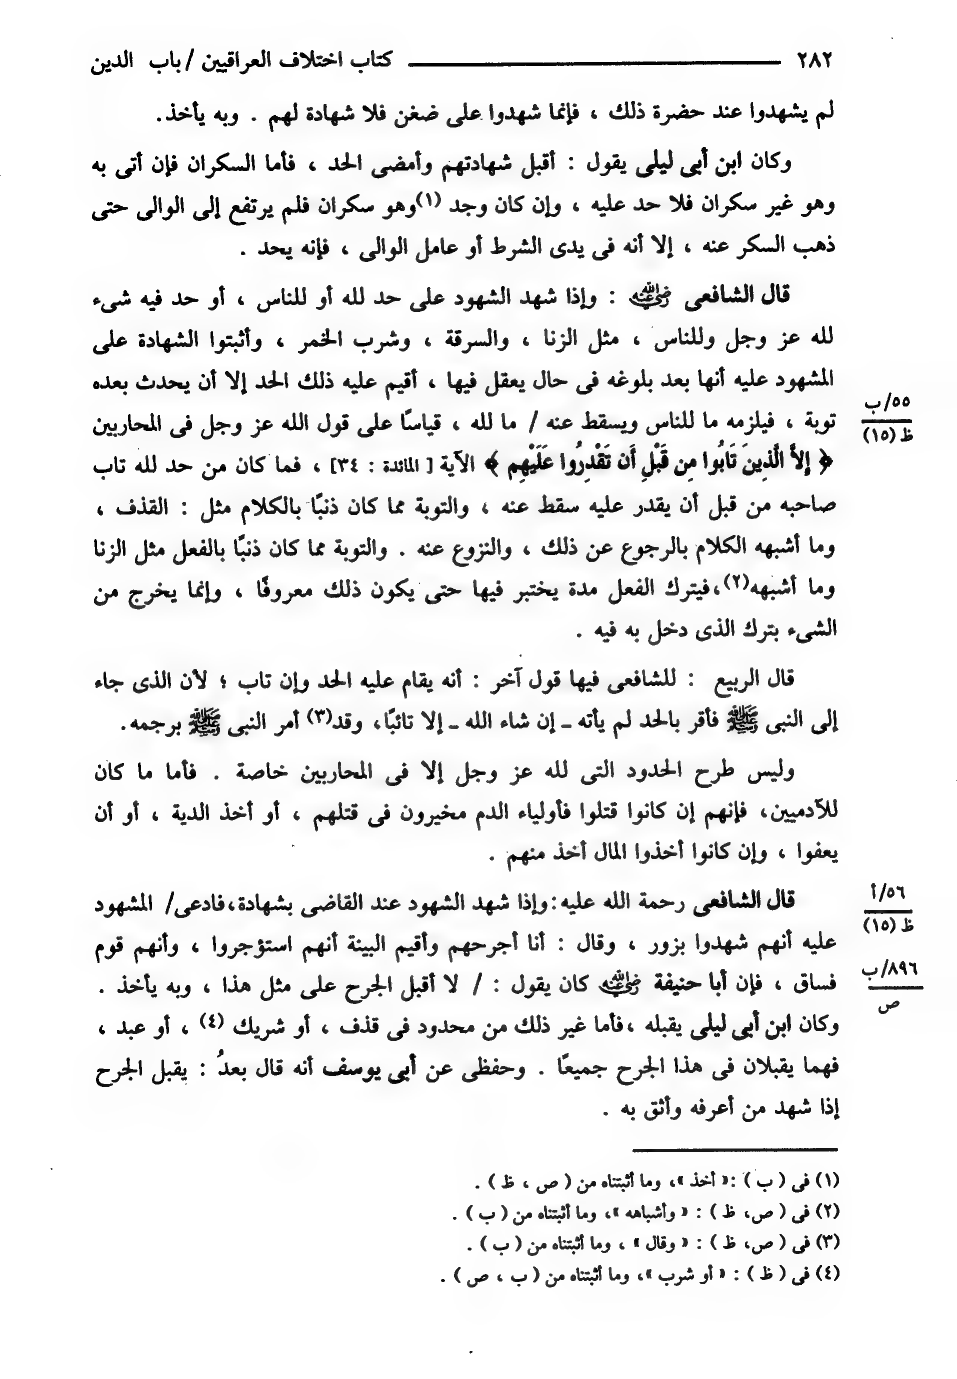 ٢٨٢ ــــــــــــــــــــ كتاب اختلاف العراقيين / باب الدين
لم يشهدوا عند حضرة ذلك ، فإنما شهدوا على ضغن فلا شهادة لهم . وبه يأخذ.
وكان ابن أبى ليلى يقول : أقبل شهادتهم وأمضى الحد ، فأما السكران فإن أتى به
وهو غير سكران فلا حد عليه ، وإن كان وجد (١)وهو سكران فلم يرتفع إلى الوالى حتى
ذهب السكر عنه ، إلا أنه فى يدى الشرط أو عامل الوالى ، فإنه يحد .
قال الشافعى رضي الله عنه : وإذا شهد الشهود على حد لله أو للناس ، أو حد فيه شىء
لله عز وجل وللناس ، مثل الزنا ، والسرقة ، وشرب الخمر ، وأثبتوا الشهادة على
المشهود عليه أنها بعد بلوغه فى حال يعقل فيها ، أقيم عليه ذلك الحد إلا أن يحدث بعده
٥٥/ب
توبة ، فيلزمه ما للناس ويسقط عنه / ما لله ، قياسًا على قول الله عز وجل فى المحاربين
ظ (١٥)
﴿ إِلاَّ الَّذِينَ تَابُوا مِن قَبْلِ أَن تَقْدِرُوا عَلَيْهِم ﴾ الآية [ المائدة : ٣٤] ، فما كان من حد لله تاب
صاحبه من قبل أن يقدر عليه سقط عنه ، والتوبة مما كان ذنبًا بالكلام مثل : القذف ،
وما أشبهه الكلام بالرجوع عن ذلك ، والنزوع عنه . والتوبة مما كان ذنبًا بالفعل مثل الزنا
وما أشبهه(٢)،فيترك الفعل مدة يختبر فيها حتى يكون ذلك معروفًا ، وإنما يخرج من
الشىء بترك الذى دخل به فيه .
قال الربيع : للشافعى فيها قول آخر : أنه يقام عليه الحد وإن تاب ؛ لأن الذى جاء
إلى النبى ﷺ فأقر بالحد لم يأته ـ إن شاء الله ـ إلا تائبًا، وقد(٣) أمر النبى ﷺ برجمه.
وليس طرح الحدود التى لله عز وجل إلا فى المحاربين خاصة . فأما ما كان
للآدميين، فإنهم إن كانوا قتلوا فأولياء الدم مخيرون فى قتلهم ، أو أخذ الدية ، أو أن
يعفوا ، وإن كانوا أخذوا المال أخذ منهم .
قال الشافعى رحمة الله عليه:وإذا شهد الشهود عند القاضى بشهادة،فادعى/ المشهود
٥٦/أ
ظ (١٥)
عليه أنهم شهدوا بزور ، وقال : أنا أجرحهم وأقيم البينة أنهم استؤجروا ، وأنهم قوم
فساق ، فإن أبا حنيفة رضي الله عنه كان يقول : / لا أقبل الجرح على مثل هذا ، وبه يأخذ .
٨٩٦/ب
ص
وكان ابن أبى ليلى يقبله ،فأما غير ذلك من محدود فى قذف ، أو شريك (٤) ، أو عبد ،
فهما يقبلان فى هذا الجرح جميعًا . وحفظى عن أبى يوسف أنه قال بعدُ : يقبل الجرح
إذا شهد من أعرفه وأثق به .
(١) فى ( ب ) :« أخذ »، وما أثبتناه من ( ص ، ظ ) .
(٢) فى ( ص، ظ ) : « وأشباهه »، وما أثبتناه من ( ب ) .
(٣) فى ( ص، ظ ) : « وقال » ، وما أثبتناه من ( ب ) .
(٤) فى ( ظ ) : « أو شرب »، وما أثبتناه من ( ب ، ص ) .